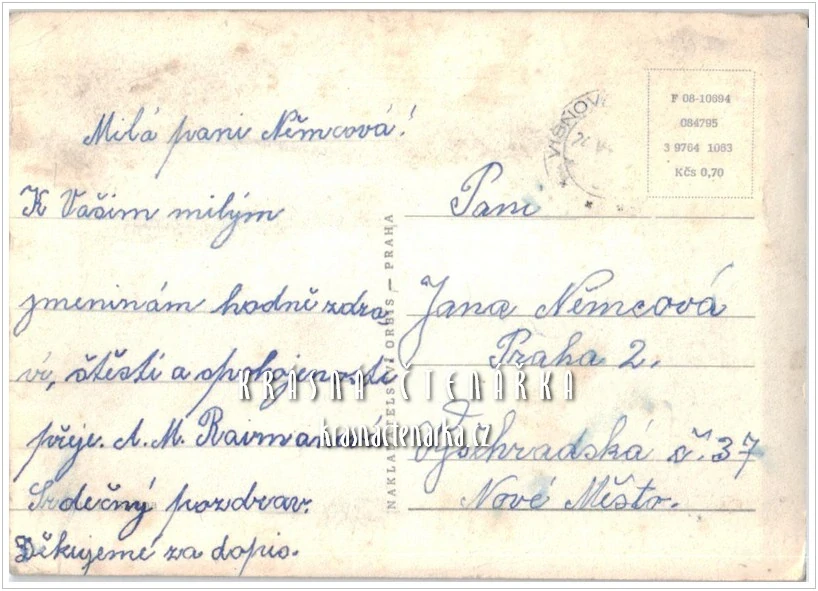 Milá paní Němcová!
K Vašim milým
jmeninám hodně zdra
ví, štěstí a spokojenosti
přeje. A. M.
Srdečný pozdrav.
Děkujeme za dopis.
NAKLADATELSTVÍ ORBIS — PRAHA
VIŠŇOV
F 08-10694
084795
3 9764 1063
Kčs 0,70
Paní
Jana Němcová
Praha 2.
Vyšehradská č. 37
Nové Město.
KRÁSNÁ ČTENÁŘKA
krasnactenarka.cz